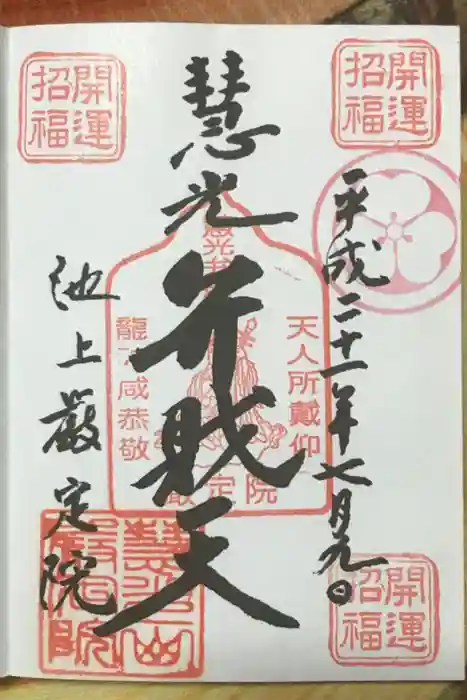 開運
招福
開運
招福
平成二十一年七月九日
慧光
弁財天
池上厳定院
天人所戴仰
龍 咸恭敬
定院
慧光山
開運
招福